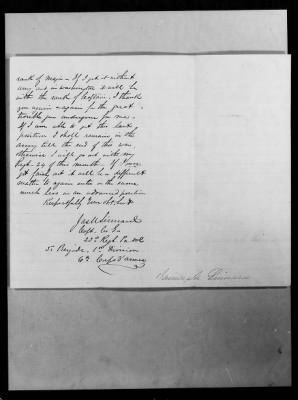 rank of Major. If I get it without
any aid in Washington it will be
with the rank of Captain. I thank
you again & again for the great
trouble you undergone for me.
If I am able to get this last
position I shall remain in the
army till the end of this war,
otherwise I will go out with my
Regt. 29 of this month. If I once
get fairly out it will be a difficult
matter to again enter in the same
much less in an advanced position
Respectfully Your Obt. Servt.
Capt. Co.
23rd Regt Pa. Vol
3d Brigade, 1st Division
6th Corps D'armee